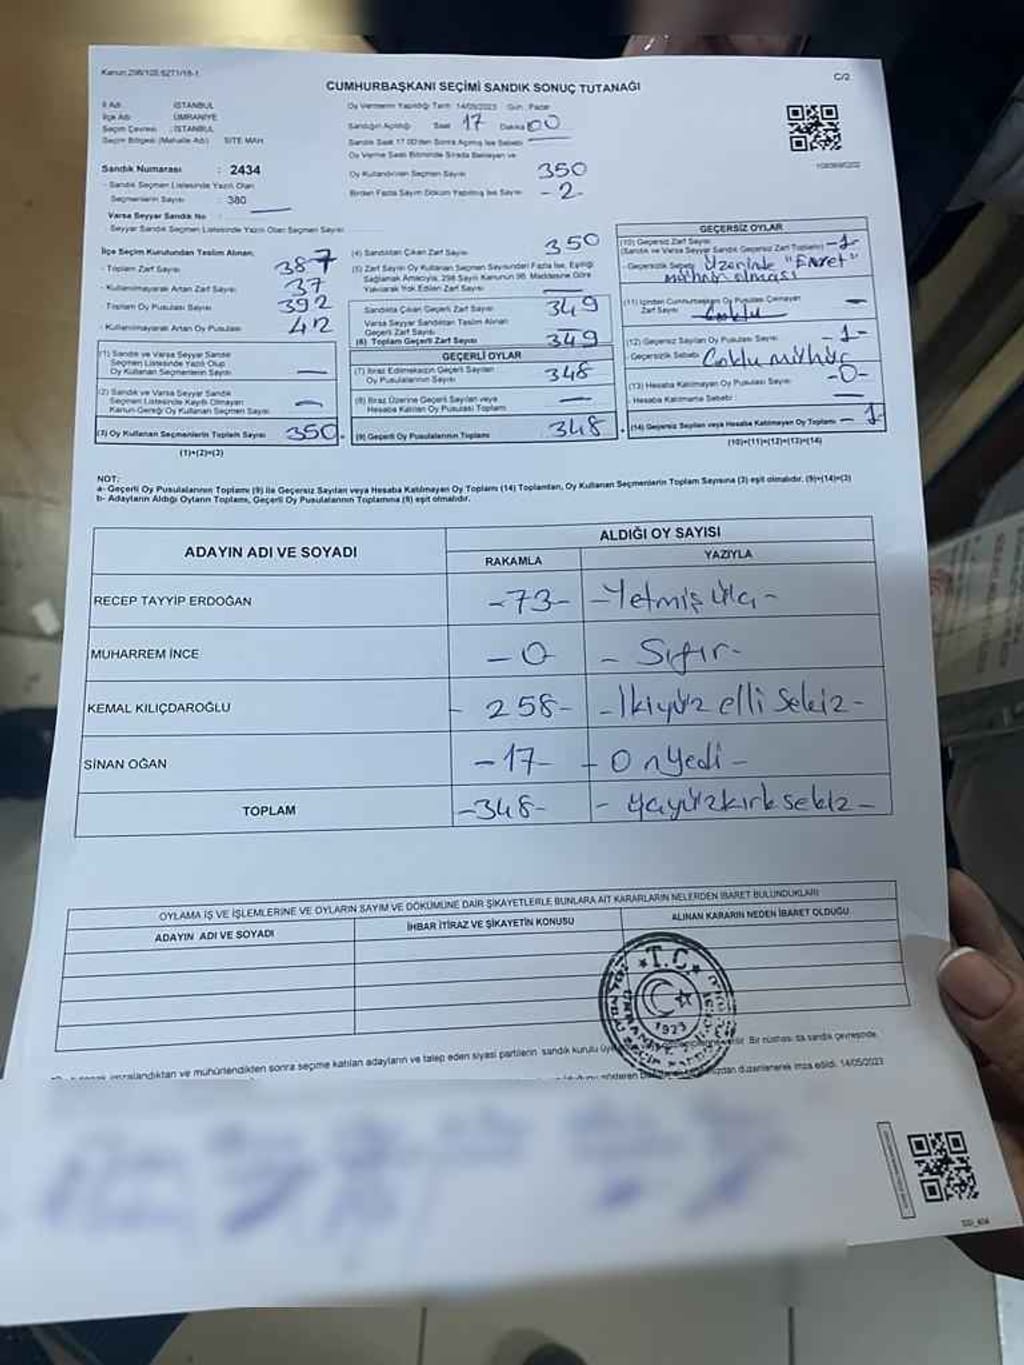 Kanun:298/105 6271/18-1
C/2
CUMHURBAŞKANI SEÇİMİ SANDIK SONUÇ TUTANAĞI
İl Adı : İSTANBUL
İlçe Adı : ÜMRANİYE
Seçim Çevresi : İSTANBUL
Seçim Bölgesi (Mahalle Adı) : SITE MAH.
Sandık Numarası : 2434
- Sandık Seçmen Listesinde Yazılı Olan
Seçmenlerin Sayısı : 380
Varsa Seyyar Sandık No :
Seyyar Sandık Seçmen Listesinde Yazılı Olan Seçmen Sayısı :
Oy Vermenin Yapıldığı Tarih: 14/05/2023 Gün: Pazar
Sandığın Açıldığı Saat 17 Dakika 00
Sandık Saat 17.00'den Sonra Açılmış İse Sebebi
Oy Verme Saati Bitiminde Sırada Bekleyen ve
Oy Kullandırılan Seçmen Sayısı 350
Birden Fazla Sayım Döküm Yapılmış İse Sayısı -2-
İlçe Seçim Kurulundan Teslim Alınan;
- Toplam Zarf Sayısı 387
- Kullanılmayarak Artan Zarf Sayısı 37
- Toplam Oy Pusulası Sayısı 392
- Kullanılmayarak Artan Oy Pusulası 42
(1) Sandık ve Varsa Seyyar Sandık
Seçmen Listesinde Yazılı Olup
Oy Kullanan Seçmenlerin Sayısı —
(2) Sandık ve Varsa Seyyar Sandık
Seçmen Listesinde Kayıtlı Olmayan
Kanun Gereği Oy Kullanan Seçmen Sayısı —
(3) Oy Kullanan Seçmenlerin Toplam Sayısı 350
(1)+(2)=(3)
(4) Sandıktan Çıkan Zarf Sayısı 350
(5) Zarf Sayısı Oy Kullanan Seçmen Sayısından Fazla İse, Eşitliği
Sağlamak Amacıyla, 298 Sayılı Kanunun 98. Maddesine Göre
Yakılarak Yok Edilen Zarf Sayısı —
Sandıkta Çıkan Geçerli Zarf Sayısı 349
Varsa Seyyar Sandıktan Teslim Alınan
Geçerli Zarf Sayısı —
(6) Toplam Geçerli Zarf Sayısı 349
GEÇERLİ OYLAR
(7) İtiraz Edilmeksizin Geçerli Sayılan
Oy Pusulalarının Sayısı 348
(8) İtiraz Üzerine Geçerli Sayılan veya
Hesaba Katılan Oy Pusulası Toplamı —
(9) Geçerli Oy Pusulalarının Toplamı 348
GEÇERSİZ OYLAR
(10) Geçersiz Zarf Sayısı
(Sandık ve Varsa Seyyar Sandık Geçersiz Zarf Toplamı) -1
- Geçersizlik Sebebi Üzerinde "Evet"
mührü olması
(11) İçinden Cumhurbaşkanı Oy Pusulası Çıkmayan
Zarf Sayısı —
(12) Geçersiz Sayılan Oy Pusulası Sayısı -1-
- Geçersizlik Sebebi Çoklu mühür
(13) Hesaba Katılmayan Oy Pusulası Sayısı -0-
- Hesaba Katılmama Sebebi : —
(14) Geçersiz Sayılan veya Hesaba Katılmayan Oy Toplamı
(10)+(11)+(12)+(13)=(14)
NOT:
a- Geçerli Oy Pusulalarının Toplamı (9) ile Geçersiz Sayılan veya Hesaba Katılmayan Oy Toplamı (14) Toplamları, Oy Kullanan Seçmenlerin Toplam Sayısına (3) eşit olmalıdır. (9)+(14)=(3)
b- Adayların Aldığı Oyların Toplamı, Geçerli Oy Pusulalarının Toplamına (9) eşit olmalıdır.
ADAYIN ADI VE SOYADI ALDIĞI OY SAYISI
RAKAMLA YAZIYLA
RECEP TAYYİP ERDOĞAN -73- -Yetmiş üç-
MUHARREM İNCE -0 - Sıfır-
KEMAL KILIÇDAROĞLU - 258- -İkiyüz elli sekiz-
SİNAN OĞAN -17- - Onyedi -
TOPLAM -348- - üçyüzkırksekiz -
OYLAMA İŞ VE İŞLEMLERİNE VE OYLARIN SAYIM VE DÖKÜMÜNE DAİR ŞİKAYETLERLE BUNLARA AİT KARARLARIN NELERDEN İBARET BULUNDUKLARI
ADAYIN ADI VE SOYADI İHBAR İTİRAZ VE ŞİKAYETİN KONUSU ALINAN KARARIN NEDEN İBARET OLDUĞU
T.C.
1923
imzalandıktan ve mühürlendikten sonra seçime katılan adayların ve talep eden siyasi partilerin sandık kurulu Bir nüshası da sandık çevresinde
düzenlenerek imza edildi. 14/05/2023